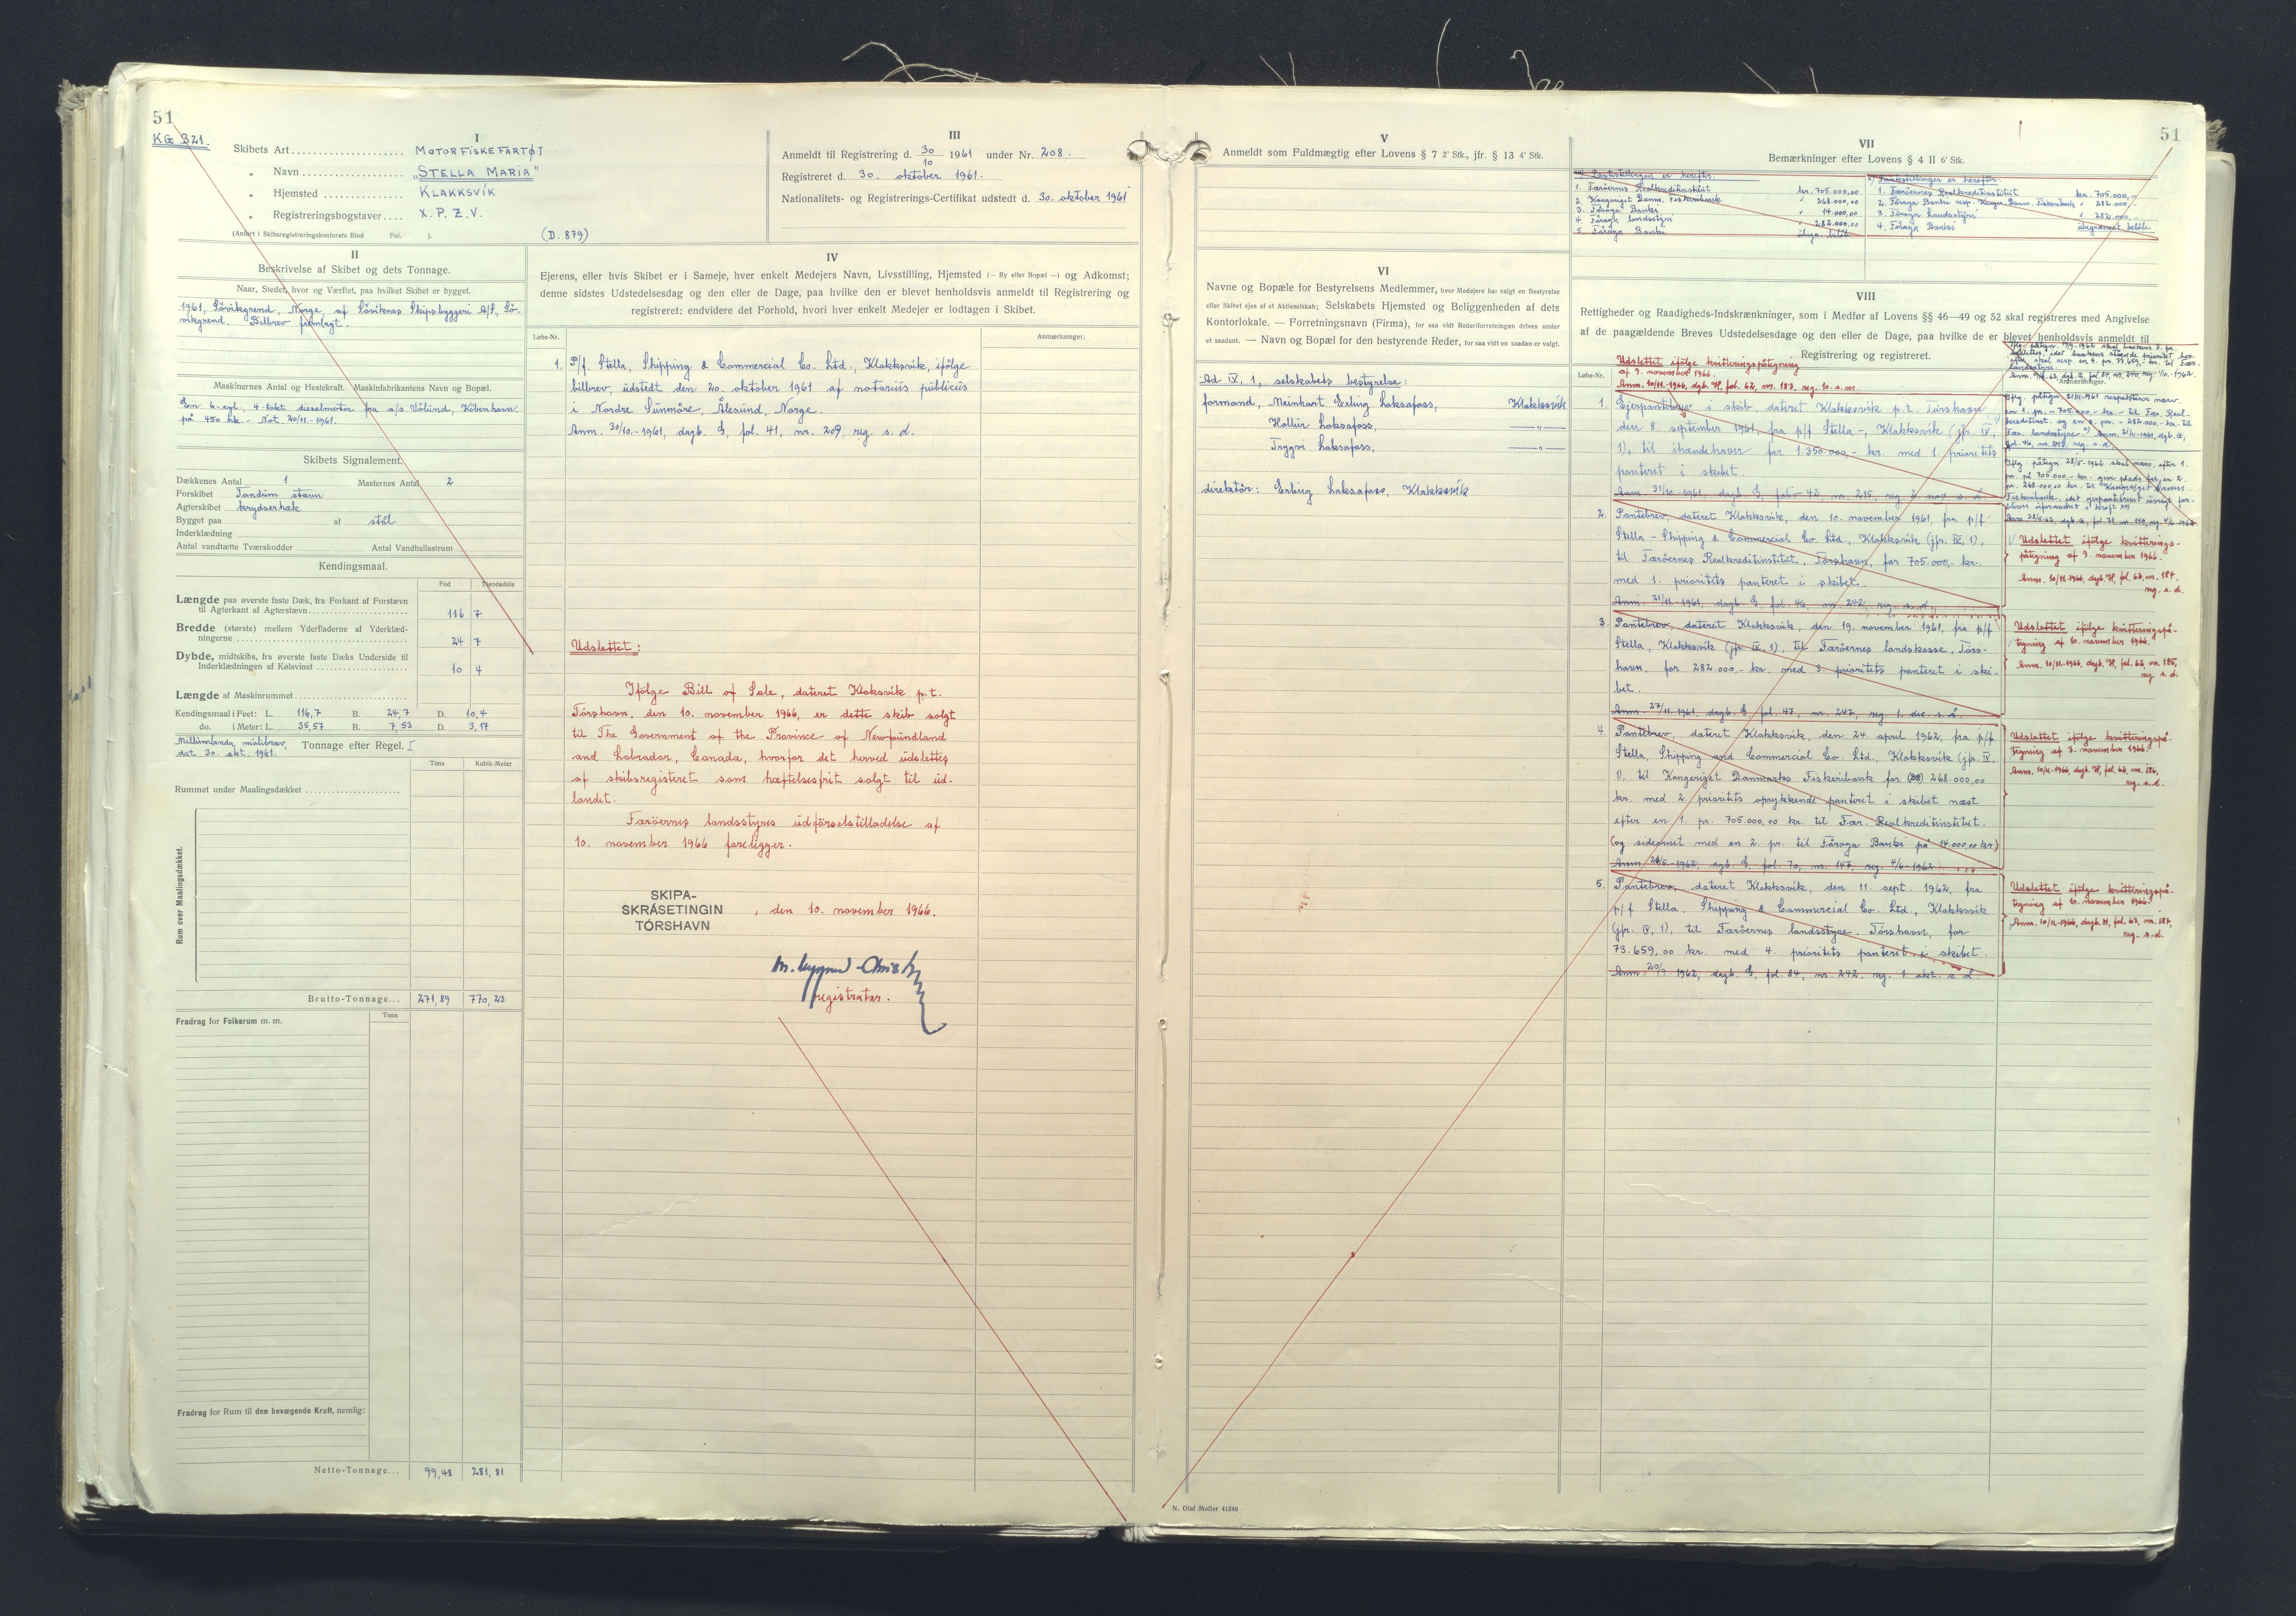 51
KG 321.
I
Skibets Art.................... MOTORFISKEFARTØJ
„ Navn................... "STELLA MARIA"
„ Hjemsted ............... KLAKKSVÍK
„ Registreringsbogstaver.... X.P.Z.V.
(Anført i Skibsregistreringskontorets Bind Fol. ).
(D. 879)
III
Anmeldt til Registrering d. 30/10 1961 under Nr. 208.
Registreret d. 30. oktober 1961.
Nationalitets- og Registrerings-Certifikat udstedt d. 30. oktober 1961
II
Beskrivelse af Skibet og dets Tonnage.
Naar, Stedet, hvor og Værftet, paa hvilket Skibet er bygget.
1961, Sövikgrend, Norge, af Söviknes Skipsbyggeri A/S, Sö-
vikgrend. Bilbrev fremlagt.
Maskinernes Antal og Hestekraft. Maskinfabrikantens Navn og Bopæl.
En 6-cyl., 4-takt dieselmotor fra a/s. Völund, Köbenhavn.
på 450 hk. - Not. 20/11.-1961.
Skibets Signalement.
Dækkenes Antal 1 Masternes Antal 2
Forskibet Tandum stavn
Agterskibet krydserhæk
Bygget paa af stål
Inderklædning
Antal vandtætte Tværskodder Antal Vandballastrum
Kendingsmaal.
Fod Tiendedele
Længde paa øverste faste Dæk, fra Forkant af Forstævn
til Agterkant af Agterstævn.................... 116 7
Bredde (største) mellem Yderfladerne af Yderklæd-
ningerne .................... 24 7
Dybde, midtskibs, fra øverste faste Dæks Underside til
Inderklædningen af Kølsvinet .................... 10 4
Længde af Maskinrummet....................
Kendingsmaal i Feet: L. 116,7 B. 24,7 D. 10,4
do. i Meter: L. 35,57 B. 7,53 D. 3,17
Millumlanda málibræv,
dat. 30. okt. 1961.
Tonnage efter Regel. I
Tons Kubik-Meter
Rummet under Maalingsdækket ....................
Rum over Maalingsdækket.
Brutto-Tonnage... 271,89 770,23
Fradrag for Folkerum m. m.
Tons
Fradrag for Rum til den bevægende Kraft, nemlig:
Netto-Tonnage... 99,48 281,81
IV
Ejerens, eller hvis Skibet er i Sameje, hver enkelt Medejers Navn, Livsstilling, Hjemsted (— By eller Bopæl —) og Adkomst;
denne sidstes Udstedelsesdag og den eller de Dage, paa hvilke den er blevet henholdsvis anmeldt til Registrering og
registreret: endvidere det Forhold, hvori hver enkelt Medejer er lodtagen i Skibet.
Løbe-Nr.
Anmærkninger.
1. P/f. Stella, Shipping & Commercial Co. Ltd., Klakksvík, ifölge
bilbrev, udstedt den 20. oktober 1961 af notarius publicus
i Nordre Sunmöre, Ålesund, Norge.
Anm. 30/10.-1961, dagb. G, fol. 41, nr. 209, reg. s. d.
Udslettet:
Ifölge Bill of Sale, dateret Klaksvík p.t.
Tórshavn, den 10. november 1966, er dette skib solgt
til The Government of the Province of Newfoundland
and Labrador, Canada, hvorfor det herved udslettes
af skibsregisteret som hæftelsesfrit solgt til ud-
landet.
Færöernes landsstyres udförselstilladelse af
10. november 1966 foreligger.
SKIPA-
SKRÁSETINGIN
TÓRSHAVN
, den 10. november 1966.
registrator.
V
Anmeldt som Fuldmægtig efter Lovens § 7 2' Stk., jfr. § 13 4' Stk.
VI
Navne og Bopæle for Bestyrelsens Medlemmer, hvor Medejere har valgt en Bestyrelse
eller Skibet ejes af et Aktieselskab; Selskabets Hjemsted og Beliggenheden af dets
Kontorlokale. — Forretningsnavn (Firma), for saa vidt Rederiforretningen drives under
et saadant. — Navn og Bopæl for den bestyrende Reder, for saa vidt en saadan er valgt.
Ad IV, 1, selskabets bestyrelse:
formand, Meinhart Erling Laksafoss, Klakksvík
Hallur Laksafoss, —„—
Tryggvi Laksafoss, —„—
direktör: Erling Laksafoss, Klakksvík
N. Olaf Møller 41249
51
VII
Bemærkninger efter Lovens § 4 II 6' Stk.
Pantestillinger er herefter:
1. Færöernes Realkreditinstitut kr. 705.000,00
2. Kongeriget Danm. Fiskeribank " 268.000,00
3. Föroya Banki " 14.000,00
4. Föroya landsstýri " 282.000,00
5. Föroya Banki ubegr. beløb
Pantestillinger er herefter:
1. Færöernes Realkreditinstitut kr. 705.000,-
2. Föroya Banki resp. Konger. Danm. Fiskeribank " 282.000,-
3. Föroya Landsstýri " 282.000,-
4. Föroya Banki ubegrænset beløb
VIII
Rettigheder og Raadigheds-Indskrænkninger, som i Medfør af Lovens §§ 46—49 og 52 skal registreres med Angivelse
af de paagældende Breves Udstedelsesdage og den eller de Dage, paa hvilke de er blevet henholdsvis anmeldt til
Registrering og registreret.
Løbe-Nr.
Anmærkninger.
Udslettet ifölge kvitteringspåtegning
af 9. november 1966.
Anm. 10/11.-1966, dagb. H, fol. 62, nr. 183, reg. 10. s. m.
1. Ejerpantebrev i skib, dateret Klakksvík p.t. Tórshavn
den 8. september 1961, fra p/f Stella -, Klakksvík (jfr. IV,
1), til ihændehaver for 1.350.000,- kr. med 1. prioritets
panteret i skibet.
Anm. 31/10 1961, dagb. G, folio 42, nr. 215, reg. 2. nov. s. å.
2. Pantebrev, dateret Klakksvík, den 10. november 1961, fra p/f
Stella - Shipping & Commercial Co. Ltd., Klakksvík (jfr. IV, 1),
til Færöernes Realkreditinstitut, Tórshavn, for 705.000,- kr.
med 1. prioritets panteret i skibet.
Anm. 21/11-1961, dagb. G, fol. 46, nr. 242, reg. s. d.
Udslettet ifölge kvitterings-
påtegning af 9. november 1966.
Anm. 10/11-1966, dagb. H, fol. 62, nr. 184,
reg. s. d.
3. Pantebrev, dateret Klakksvík, den 19. november 1961, fra p/f
Stella, Klakksvík (jfr. IV, 1), til Færöernes landskasse, Tórs-
havn, for 282.000,- kr. med 3. prioritets panteret i ski-
bet.
Anm. 27/11-1961, dagb. G, fol. 47, nr. 247, reg. 1. dec. s. å.
Udslettet ifölge kvitteringspå-
tegning af 10. november 1966.
Anm. 10/11-1966, dagb. H, fol. 62, nr. 185,
reg. s. d.
4. Pantebrev, dateret Klakksvík, den 24. april 1962, fra p/f
Stella, Shipping and Commercial Co. Ltd., Klakksvík (jfr. IV,
1), til Kongeriget Danmarks Fiskeribank for 268.000,00
kr. med 2. prioritets oprykkende panteret i skibet næst
efter en 1. pr. 705.000,00 kr. til Fær. Realkreditinstitut.
(og sideornet med en 2. pr. til Föroya Banki på 14.000,00 kr.)
Anm. 28/5-1962, dagb. G, fol. 70, nr. 147, reg. 4/6-1962.
Udslettet ifölge kvitteringspå-
tegning af 3. november 1966.
Anm. 10/11-1966, dagb. H, fol. 62, nr. 186,
reg. s. d.
5. Pantebrev, dateret Klakksvík, den 11. sept. 1962, fra
p/f Stella, Shipping & Commercial Co. Ltd., Klakksvík
(jfr. IV, 1), til Færöernes landsstyre, Tórshavn, for
73.659,00 kr. med 4. prioritets panteret i skibet.
Anm. 20/9 1962, dagb. G, fol. 84, nr. 242, reg. 1. okt. s. å.
Udslettet ifölge kvitteringspå-
tegning af 10. november 1966.
Anm. 10/11-1966, dagb. H, fol. 63, nr. 187,
reg. s. d.